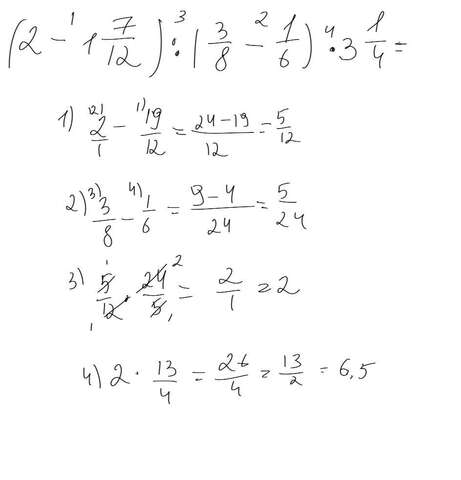 (2 -¹ 1 7/12) :³ (3/8 -² 1/6) ·⁴ 3 1/4 =
1) ¹²⁾2/1 - ¹⁾19/12 = 24-19/12 = 5/12
2) ³⁾3/8 - ⁴⁾1/6 = 9-4/24 = 5/24
3) 5/12 · 24/5 = 2/1 = 2
4) 2 · 13/4 = 26/4 = 13/2 = 6,5